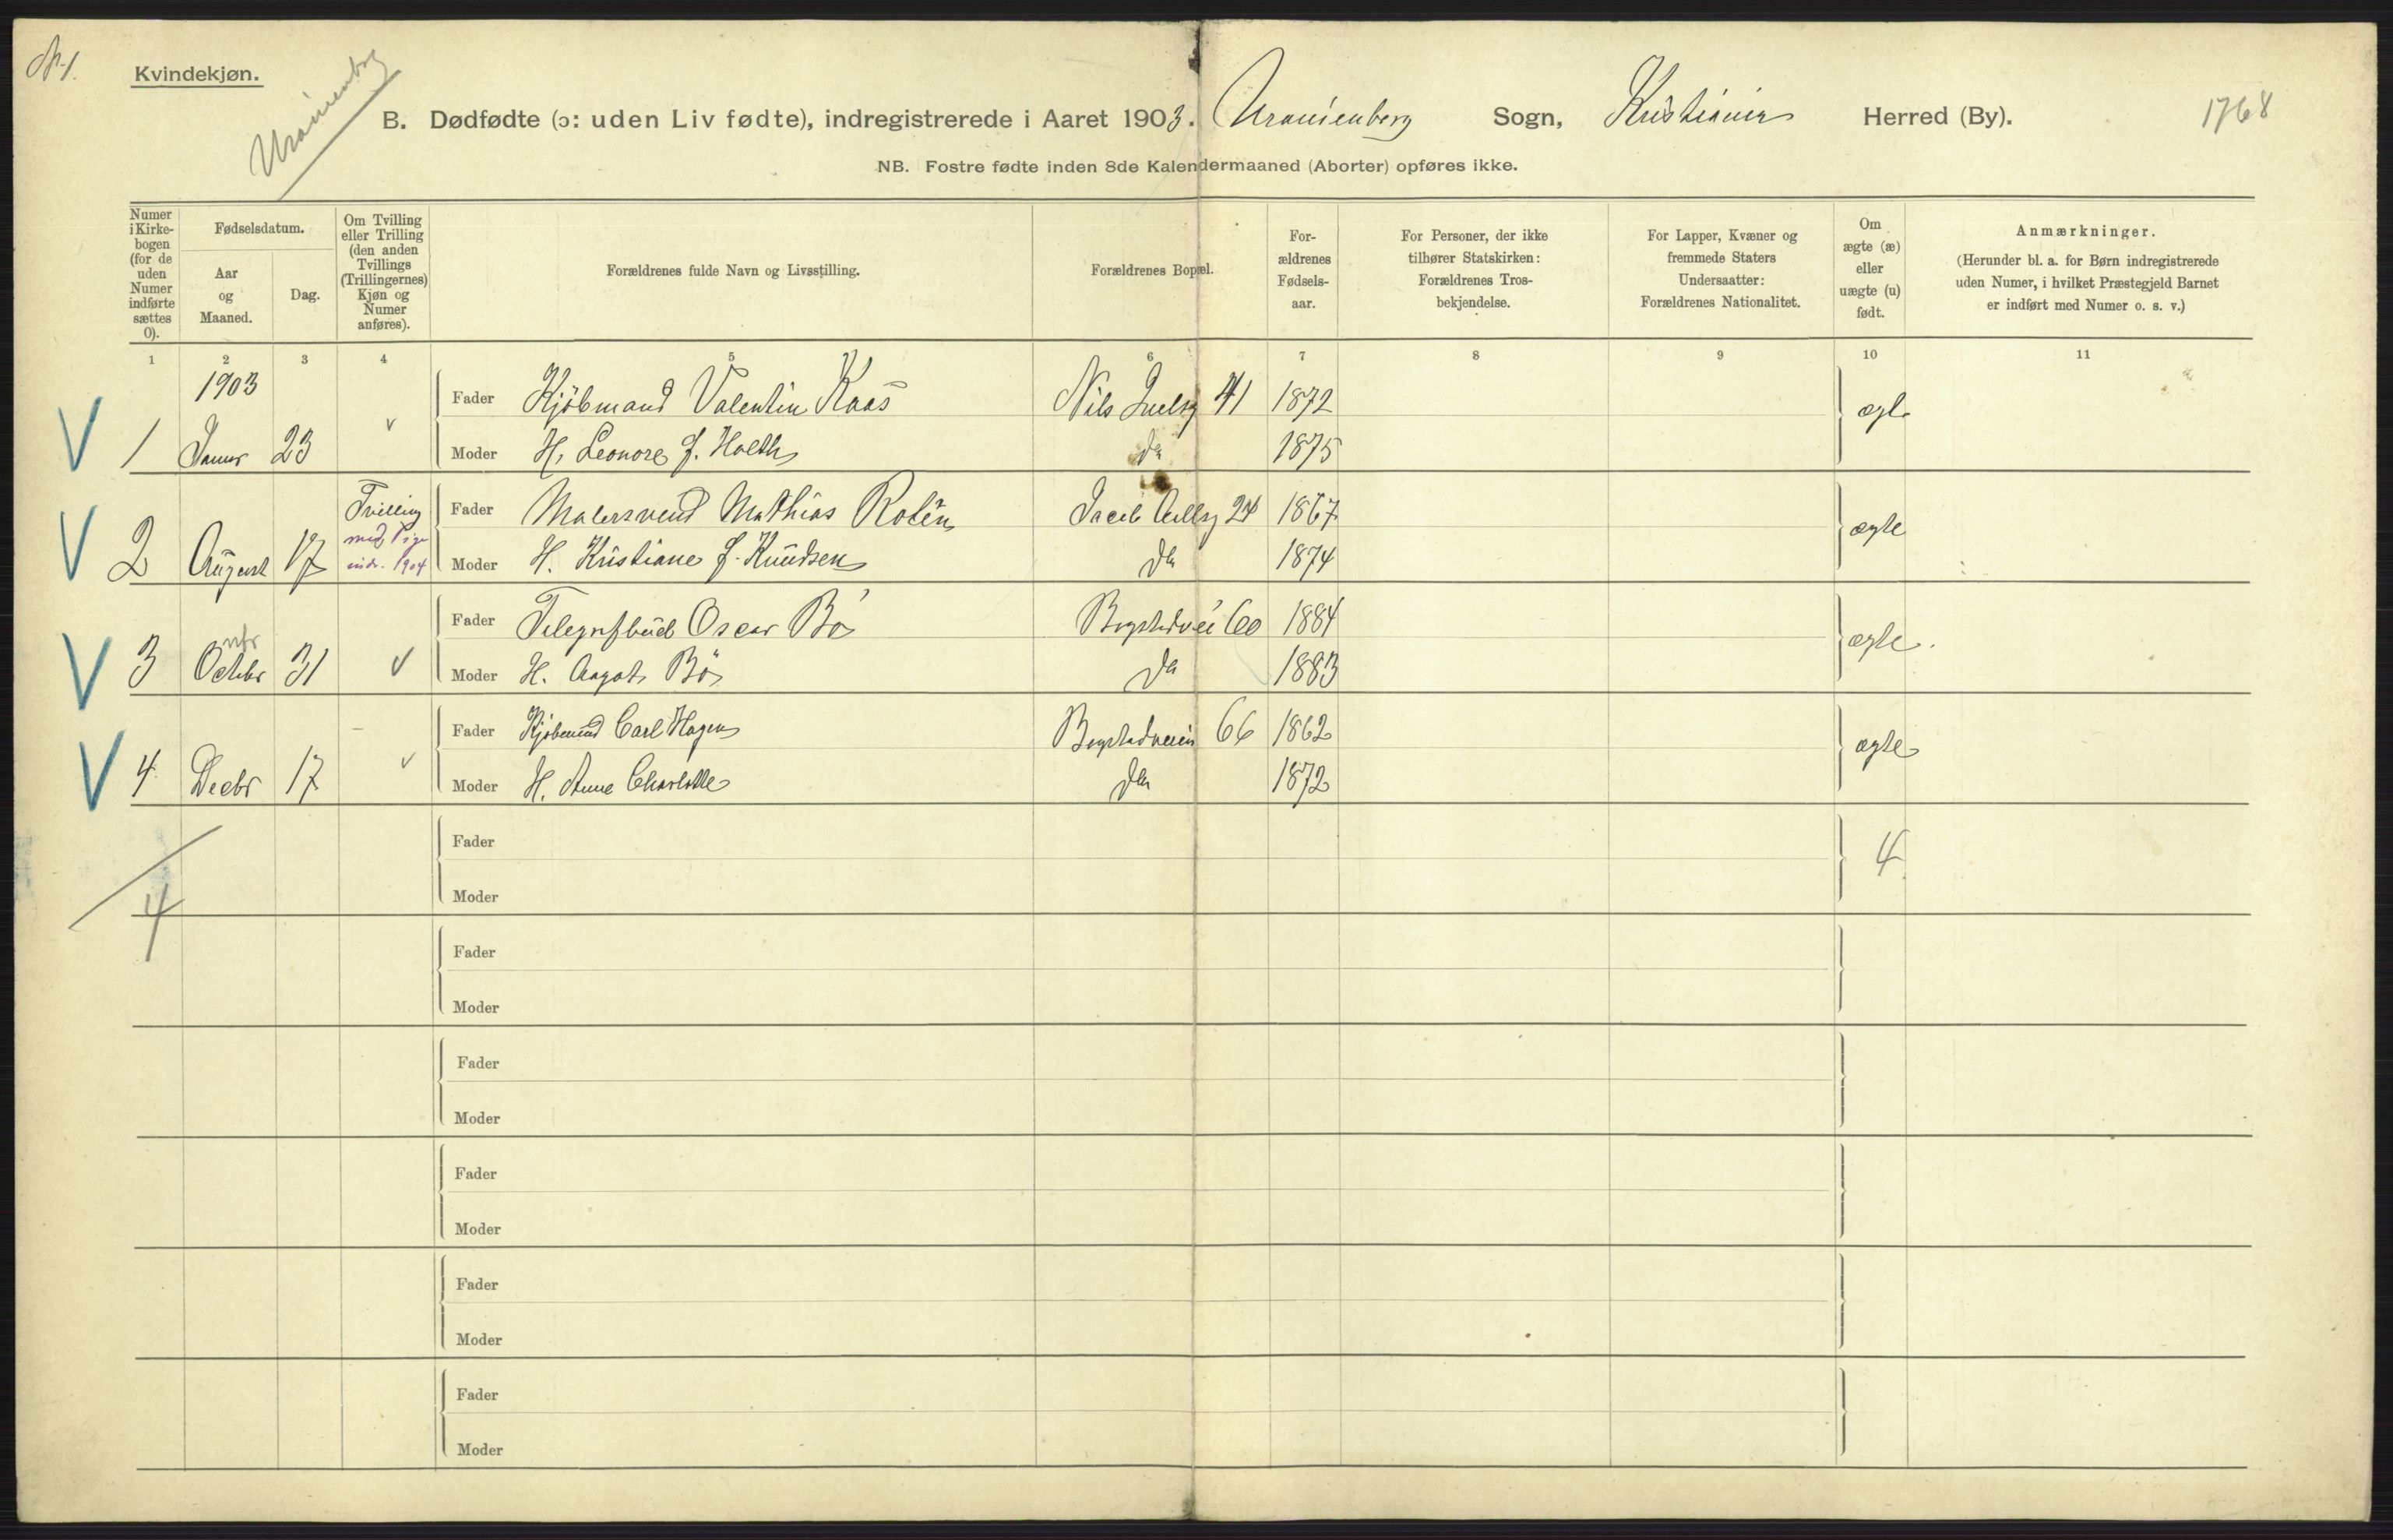 Nr 1.
Kvindekjøn.
Uranienborg
B. Dødfødte (ɔ: uden Liv fødte), indregistrerede i Aaret 1903. Uranienborg Sogn, Kristiania Herred (By).
1768
NB. Fostre fødte inden 8de Kalendermaaned (Aborter) opføres ikke.
Numer i Kirke-bogen (for de uden Numer indførte sættes 0).
Fødselsdatum.
Aar og Maaned.
Dag.
Om Tvilling eller Trilling (den anden Tvillings (Trillingernes) Kjøn og Numer anføres).
Forældrenes fulde Navn og Livsstilling.
Forældrenes Bopæl.
For-ældrenes Fødsels-aar.
For Personer, der ikke tilhører Statskirken: Forældrenes Tros-bekjendelse.
For Lapper, Kvæner og fremmede Staters Undersaatter: Forældrenes Nationalitet.
Om ægte (æ) eller uægte (u) født.
Anmærkninger.
(Herunder bl. a. for Børn indregistrerede uden Numer, i hvilket Præstegjeld Barnet er indført med Numer o. s. v.)
1 2 3 4 5 6 7 8 9 10 11
1903
Fader Kjöbmand Valentin Kaas Nils Juelsg 41 1872 ægte
V 1 Januar 23 v Moder H. Leonore f. Holth do 1875
Tvilling med Pige indr. 1904
Fader Malersvend Mathias Rolén Jacob Aallsg 24 1867 ægte
V 2 August 17 Moder H. Kristiane f. Knudsen do 1874
Fader Telegrafbud Oscar Bö Bogstadvei 60 1884 ægte.
V 3 Octbr 31 v Moder H. Aagot Bö do 1883
Fader Kjöbmand Carl Hagen Bogstadveien 66 1862 ægte
V 4 Decbr 17 v Moder H. Anne Charlotte do 1872
Fader
4
Moder
4
Fader
Moder
Fader
Moder
Fader
Moder
Fader
Moder
Fader
Moder